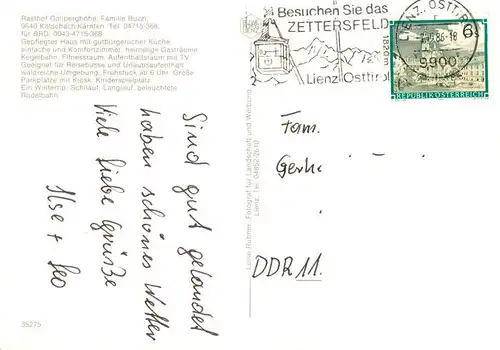 Rasthof Gailberghöhe, Familie Buzzi,
9640 Kötschach-Kärnten, Tel. 04715-368,
für BRD: 0043-4715-368.
Gepflegtes Haus mit gutbürgerlicher Küche
einfache und Komfortzimmer, heimelige Gasträume
Kegelbahn, Fitnessraum, Aufenthaltsraum mit TV
Geeignet für Reisebusse und Urlaubsaufenthalt
waldreiche Umgebung, Frühstück ab 6 Uhr. Große
Parkplätze mit Kiosk, Kinderspielplatz.
Ein Wintertip: Schilauf, Langlauf, beleuchtete
Rodelbahn.
Besuchen Sie das
ZETTERSFELD
1820m
Lienz Osttirol
LIENZ, OSTTIROL
86-18
9900
6
REPUBLIK ÖSTERREICH
Sind gut gelandet
haben schönes Wetter
Viele liebe Grüße
Ilse + Leo
Luise Ruhmer, Fotograf für Landschaft und Werbung,
Lienz, Tel. 04852-2610
Fam.
Gerh
DDR 11.
35275